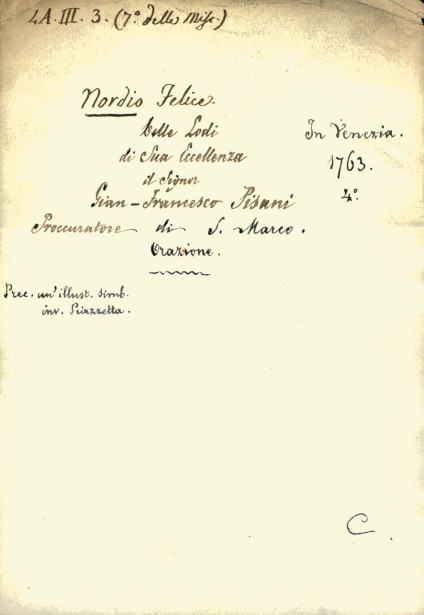 4A. III. 3. (7º delle Misc.)
Nordio Felice.
Delle Lodi
di Sua Eccellenza
il Signor
Gian-Francesco Pisani
Proccuratore di S. Marco.
Orazione.
In Venezia.
1763.
4º.
Prec. un' illust. simb.
inv. Piazzetta.
C.